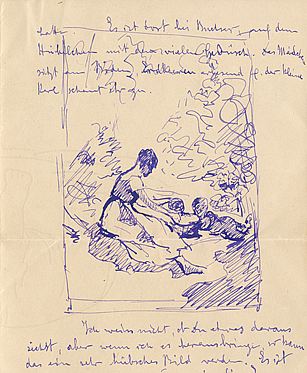 hatte. Es ist dort bei Buchser, auf dem
mit den vielen Gebüsch. Das Mädchen
sitzt am Boden, Erdbeeren essend & der kleine
Kerl schaut ihr zu.
Ich weiss nicht, ob Du etwas daraus
siehst, aber wenn ich es herausbringe, so kann
das ein sehr hübsches Bild werden. Es ist